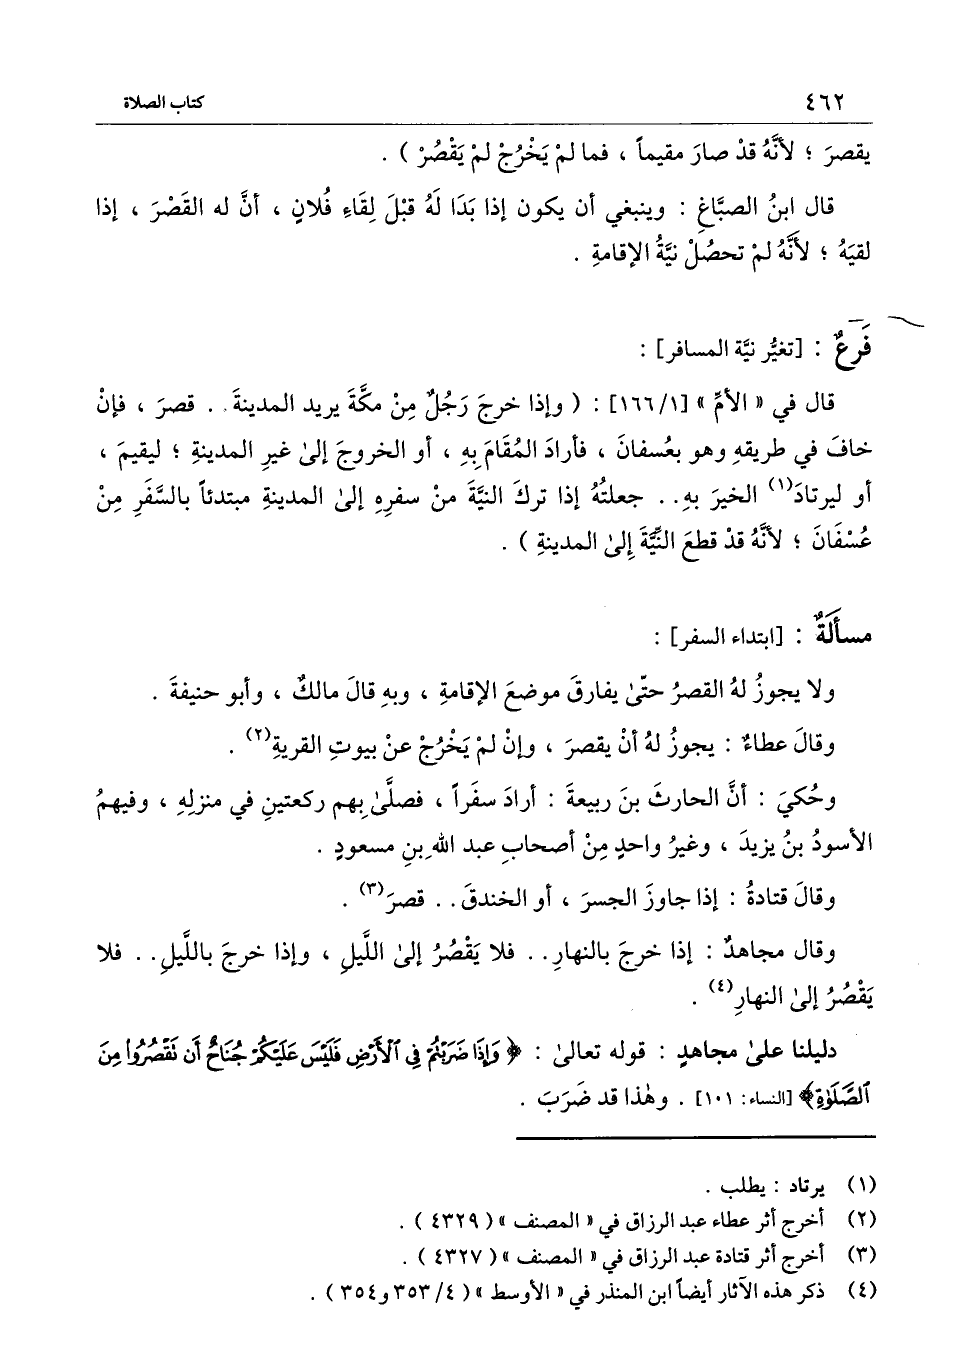 ٤٦٢ كتاب الصلاة
يقصرَ ؛ لأنَّهُ قدْ صارَ مقيماً ، فما لمْ يَخْرُجْ لمْ يَقْصُرْ ) .
قال ابنُ الصبَّاغِ : وينبغي أن يكون إذا بَدَا لَهُ قبْلَ لِقَاءِ فُلانٍ ، أنَّ له القَصْرَ ، إذا
لقيَهُ ؛ لأنَّهُ لمْ تحصُلْ نيَّةُ الإقامةِ .
فَرعٌ : [تغيُّر نيَّة المسافر] :
قال في « الأمِّ » [١/ ١٦٦] : ( وإذا خرجَ رَجُلٌ مِنْ مكَّةَ يريد المدينةَ .. قصرَ ، فإنْ
خافَ في طريقهِ وهو بعُسفانَ ، فأرادَ المُقامَ بِهِ ، أو الخروجَ إلىٰ غيرِ المدينةِ ؛ ليقيمَ ،
أو ليرتادَ(١) الخيرَ بهِ .. جعلتُهُ إذا تركَ النيَّةَ من سفرِهِ إلىٰ المدينةِ مبتدئاً بالسَّفَرِ مِنْ
عُسْفَانَ ؛ لأنَّهُ قدْ قطعَ النِّيَّةَ إلىٰ المدينةِ ) .
مسألَةٌ : [ابتداء السفر] :
ولا يجوزُ لهُ القصرُ حتَّىٰ يفارقَ موضعَ الإقامةِ ، وبهِ قالَ مالكٌ ، وأبو حنيفةَ .
وقالَ عطاءٌ : يجوزُ لهُ أنْ يقصرَ ، وإنْ لمْ يَخْرُجْ عنْ بيوتِ القريةِ(٢) .
وحُكيَ : أنَّ الحارثَ بنَ ربيعةَ : أرادَ سفَراً ، فصلَّىٰ بِهم ركعتينِ في منزلِهِ ، وفيهمُ
الأسودُ بنُ يزيدَ ، وغيرُ واحدٍ مِنْ أصحابِ عبد اللهِ بنِ مسعودٍ .
وقالَ قتادةُ : إذا جاوزَ الجسرَ ، أو الخندقَ .. قصرَ(٣) .
وقال مجاهدٌ : إذا خرجَ بالنهارِ .. فلا يَقْصُرُ إلىٰ اللَّيلِ ، وإذا خرجَ باللَّيلِ .. فلا
يَقْصُرُ إلىٰ النهارِ(٤) .
دليلنا علىٰ مجاهدٍ : قوله تعالىٰ : ﴿ وَإِذَا ضَرَبْتُمْ فِى ٱلْأَرْضِ فَلَيْسَ عَلَيْكُمْ جُنَاحٌ أَن تَقْصُرُوا۟ مِنَ
ٱلصَّلَوٰةِ ﴾ [النساء: ١٠١] . وهٰذا قد ضَرَبَ .
(١) يرتاد : يطلب .
(٢) أخرج أثر عطاء عبد الرزاق في « المصنف » ( ٤٣٢٩ ) .
(٣) أخرج أثر قتادة عبد الرزاق في « المصنف » ( ٤٣٢٧ ) .
(٤) ذكر هذه الآثار أيضاً ابن المنذر في « الأوسط » ( ٤/ ٣٥٣ و ٣٥٤ ) .